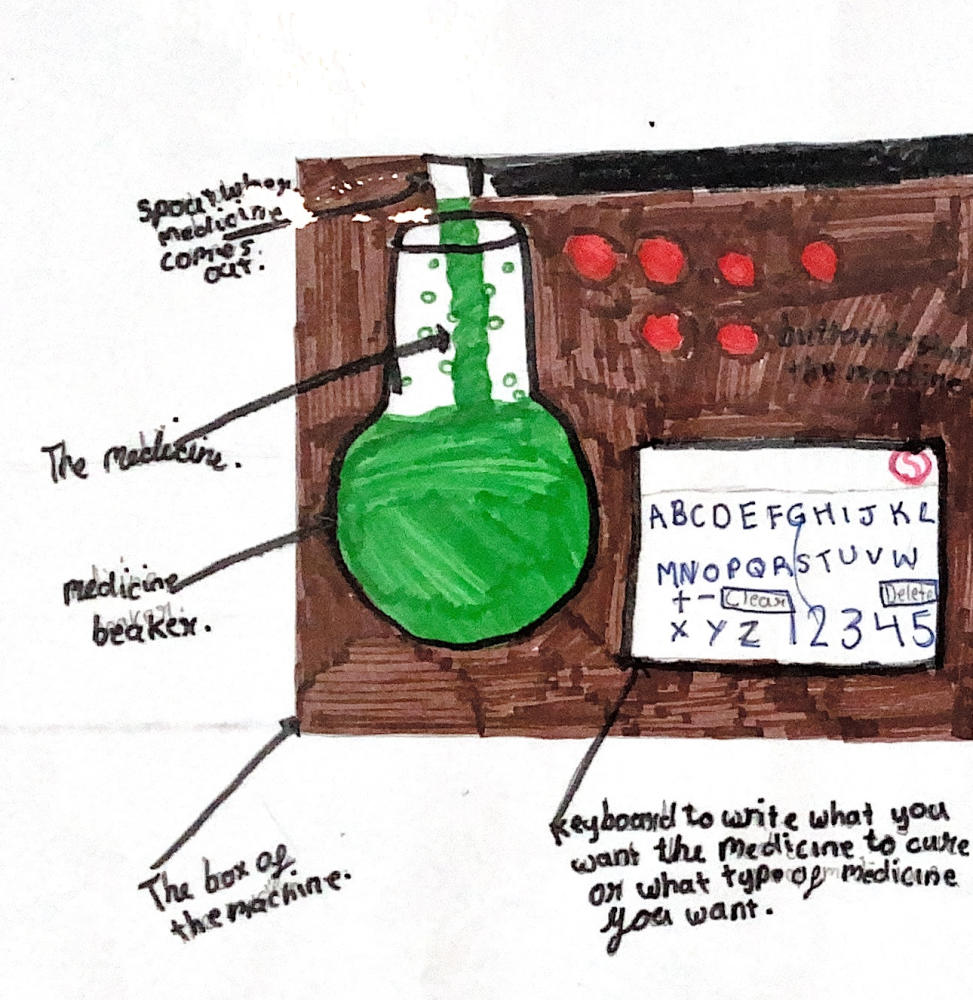 spout where
medicine
comes
out.
button to
the machine
The medicine.
S
ABCDEFGHIJKL
MNOPQRSTUVW
+ - Clear Delete
X Y Z 12345
medicine
beaker.
The box of
the machine.
keyboard to write what you
want the medicine to cure
or what type of medicine
you want.